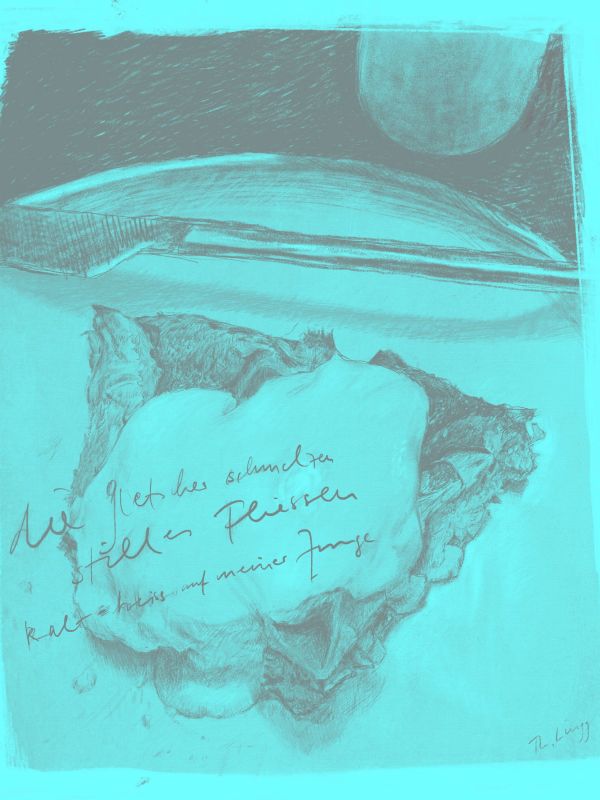 die gletscher schmelzen
stilles Fliessen
kalt-heiss auf meiner Zunge
Th. Lüngg